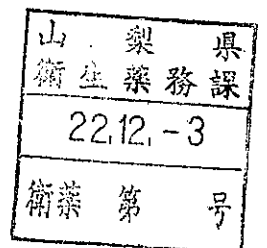 山梨県
衛生薬務課
22.12.-3
衛薬 第 号